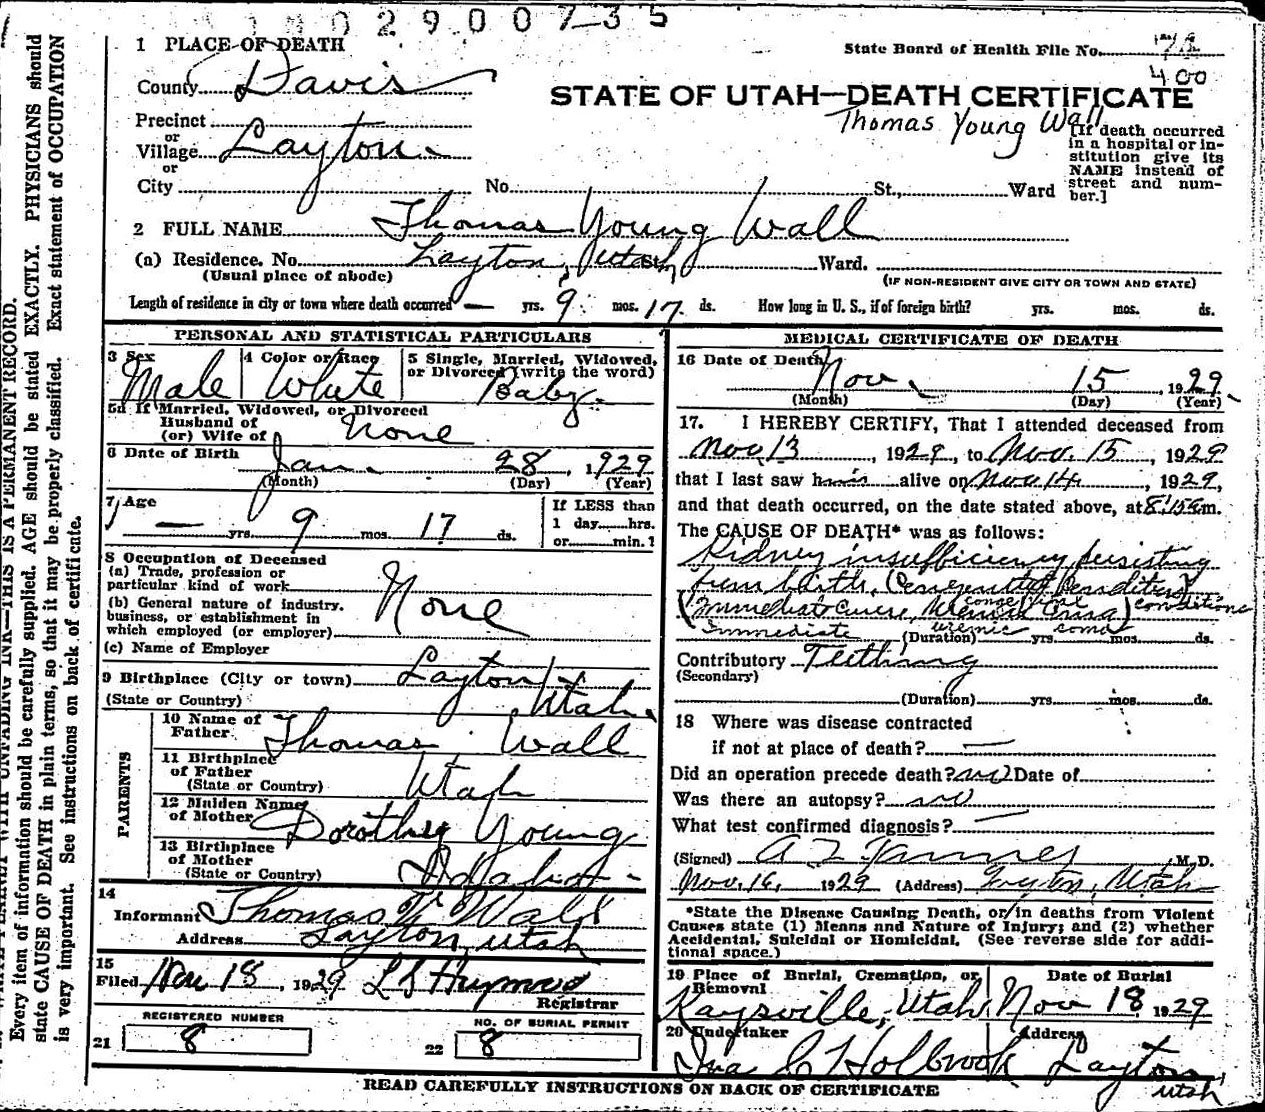 029007-35
1 PLACE OF DEATH
State Board of Health File No.
400
County Davis
STATE OF UTAH—DEATH CERTIFICATE
Thomas Young Wall
Precinct
or
Village Layton
or
City No. St., Ward
[If death occurred
in a hospital or in-
stitution give its
NAME instead of
street and num-
ber.]
2 FULL NAME Thomas Young Wall
(a) Residence. No. Layton, Utah St. Ward.
(Usual place of abode)
(IF NON-RESIDENT GIVE CITY OR TOWN AND STATE)
Length of residence in city or town where death occurred — yrs. 9 mos. 17 ds. How long in U. S., if of foreign birth? yrs. mos. ds.
PERSONAL AND STATISTICAL PARTICULARS
3 Sex
Male
4 Color or Race
White
5 Single, Married, Widowed,
or Divorced (write the word)
Baby
5a If Married, Widowed, or Divorced
Husband of
(or) Wife of None
6 Date of Birth
Jan. 28, 1929
(Month) (Day) (Year)
7 Age
— yrs. 9 mos. 17 ds.
If LESS than
1 day......hrs.
or......min.?
8 Occupation of Deceased
(a) Trade, profession or
particular kind of work
(b) General nature of industry,
business, or establishment in
which employed (or employer)
None
(c) Name of Employer
9 Birthplace (City or town) Layton
(State or Country) Utah.
PARENTS
10 Name of
Father Thomas Wall
11 Birthplace
of Father
(State or Country) Utah
12 Maiden Name
of Mother Dorothy Young
13 Birthplace
of Mother
(State or Country) Idaho
14
Informant Thomas Wall
Address Layton, Utah
15
Filed Nov 18, 1929
Registrar
REGISTERED NUMBER
21 8
NO. OF BURIAL PERMIT
22 8
MEDICAL CERTIFICATE OF DEATH
16 Date of Death
Nov. 15, 1929
(Month) (Day) (Year)
17. I HEREBY CERTIFY, That I attended deceased from
Nov 13, 1929, to Nov. 15, 1929
that I last saw him alive on Nov 14, 1929,
and that death occurred, on the date stated above, at 8:15 a m.
The CAUSE OF DEATH* was as follows:
Kidney insufficiency persisting
from birth. (Congenital
(Immediate cause, Uremic Coma) conditions
Immediate uremic coma
(Duration) yrs. mos. ds.
Contributory Teething
(Secondary)
(Duration) yrs. mos. ds.
18 Where was disease contracted
if not at place of death? —
Did an operation precede death? no Date of
Was there an autopsy? no
What test confirmed diagnosis? —
(Signed) M. D.
Nov. 16, 1929 (Address) Layton, Utah
*State the Disease Causing Death, or in deaths from Violent
Causes state (1) Means and Nature of Injury; and (2) whether
Accidental, Suicidal or Homicidal. (See reverse side for addi-
tional space.)
19 Place of Burial, Cremation, or
Removal
Kaysville, Utah.
Date of Burial
Nov 18 1929
20 Undertaker
Holbrook
Address
Layton
Utah
READ CAREFULLY INSTRUCTIONS ON BACK OF CERTIFICATE
INK—THIS IS A PERMANENT RECORD.
Every item of information should be carefully supplied. AGE should be stated EXACTLY. PHYSICIANS should
state CAUSE OF DEATH in plain terms, so that it may be properly classified. Exact statement of OCCUPATION
is very important. See instructions on back of certificate.